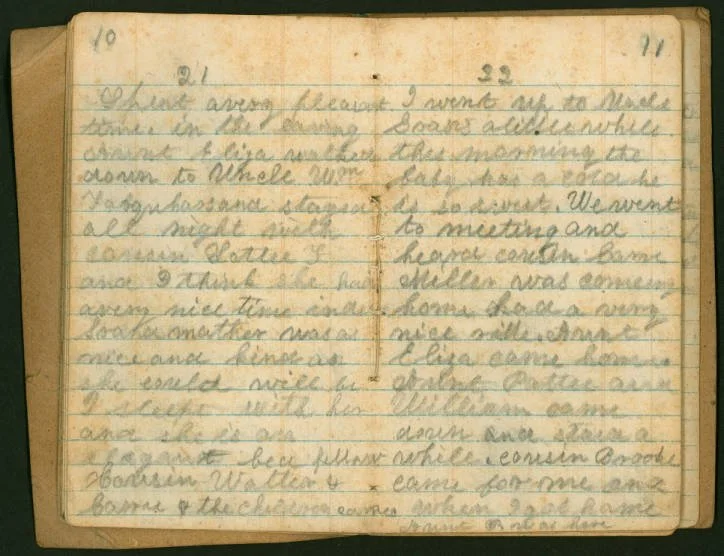 10
21
Spent avery pleasant
time. in the evning
Aunt Eliza walked
down to Uncle Wm
and stayed
all night with
cousin Lottie F
and I think she had
avery nice time inde
mother was as
nice and kind as
she could will be
I sleept with her
and she is an
elegant bed fellow
Cousin Walter &
Carrie & the children came
11
22
I went up to Uncle
a little while
this morning the
baby has a cold he
is so sweet. We went
to meeting and
heard cousin Carrie
Miller was comeing
home had a very
nice ride. Aunt
Eliza came home
Aunt Pattie and
William came
down and staid a
while. cousin Brooke
came for me and
when I got home
Aunt was here